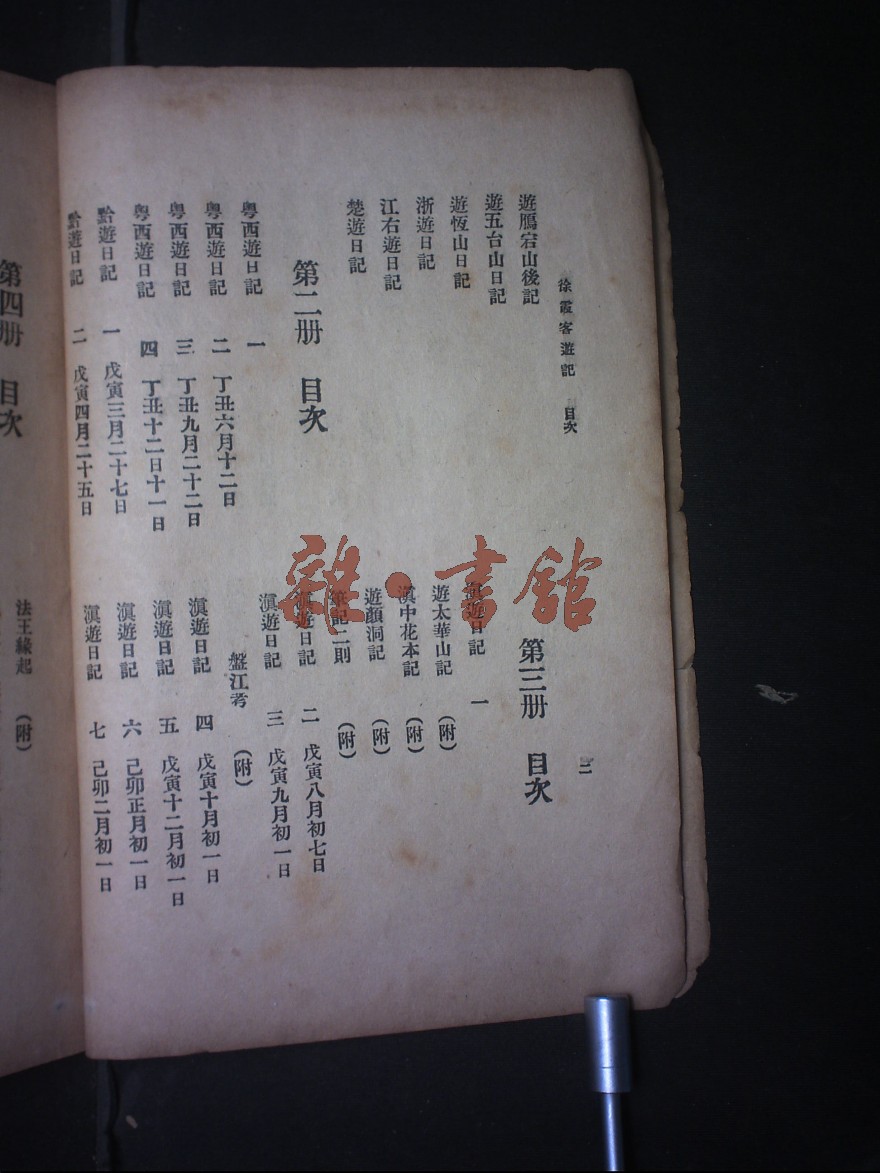 徐霞客遊記 目次
二
遊鴈宕山後記
遊五台山日記
遊恆山日記
浙遊日記
江右遊日記
楚遊日記
第二册 目次
粵西遊日記 一
粵西遊日記 二 丁丑六月十二日
粵西遊日記 三 丁丑九月二十二日
粵西遊日記 四 丁丑十二日十一日
黔遊日記 一 戊寅三月二十七日
黔遊日記 二 戊寅四月二十五日
第三册 目次
滇遊日記 一
遊太華山記 (附)
滇中花木記 (附)
遊顏洞記 (附)
筆記二則 (附)
滇遊日記 二 戊寅八月初七日
滇遊日記 三 戊寅九月初一日
盤江考 (附)
滇遊日記 四 戊寅十月初一日
滇遊日記 五 戊寅十二月初一日
滇遊日記 六 己卯正月初一日
滇遊日記 七 己卯二月初一日
第四册 目次
法王緣起 (附)
雜·書館